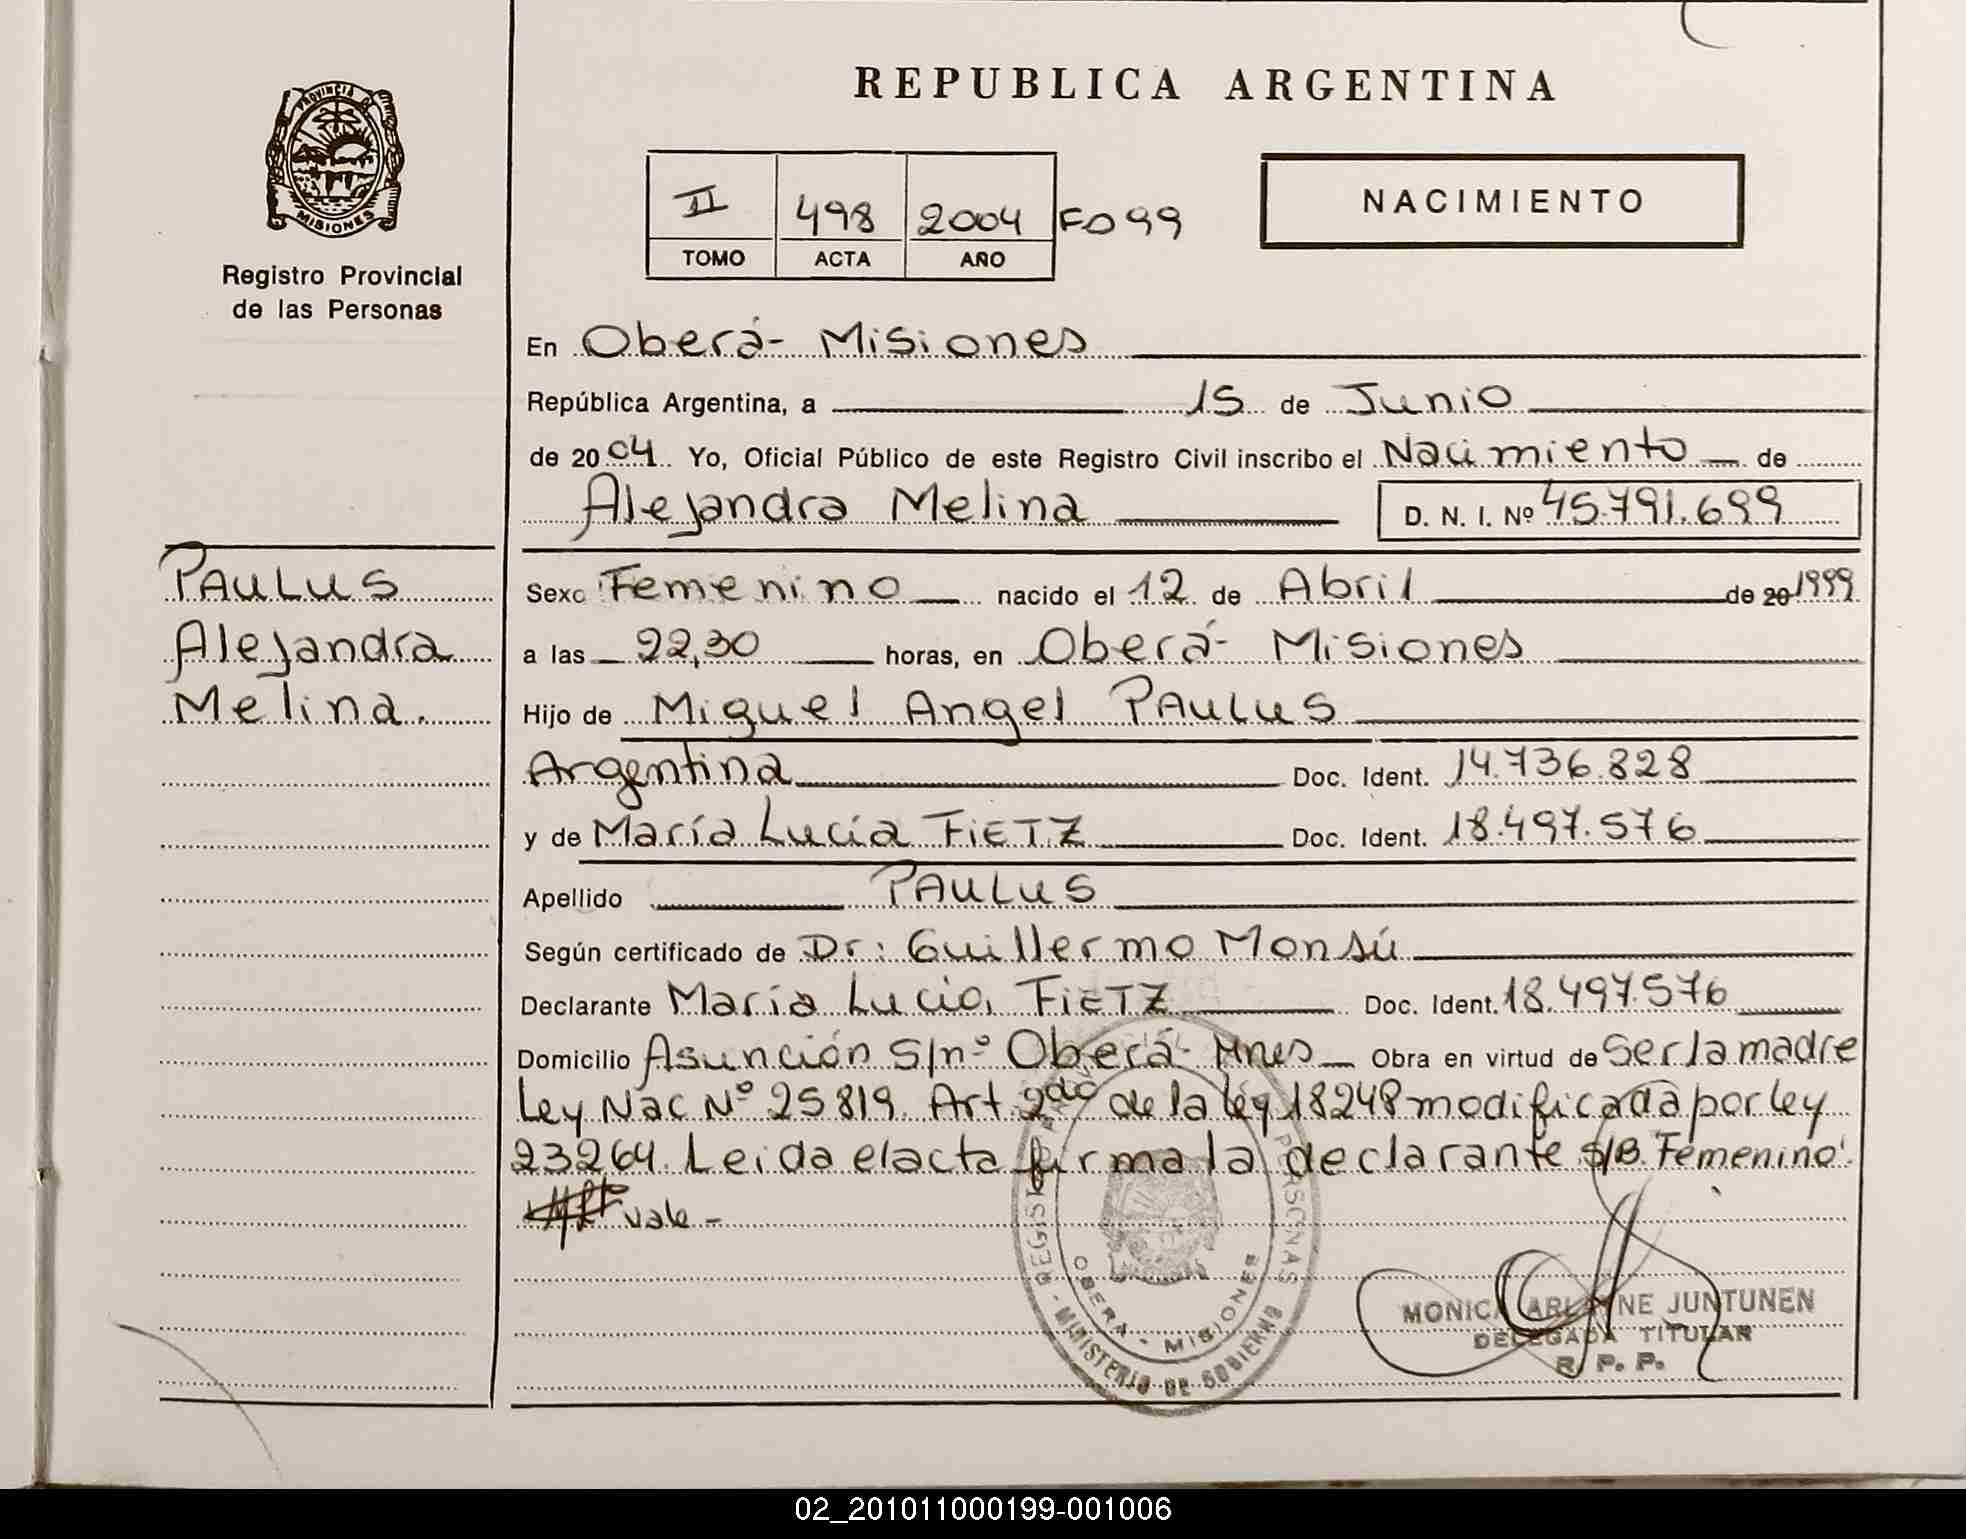 REPUBLICA ARGENTINA
PROVINCIA DE
MISIONES
Registro Provincial
de las Personas
II 498 2004 Fo 99
TOMO ACTA AÑO
NACIMIENTO
En Oberá- Misiones
República Argentina, a 15 de Junio
de 2004 Yo, Oficial Público de este Registro Civil inscribo el Nacimiento de
Alejandra Melina D. N. I. Nº 45.791.699
PAULUS
Alejandra
Melina.
Sexo Femenino nacido el 12 de Abril de 20 1999
a las 22,30 horas, en Oberá- Misiones
Hijo de Miguel Angel PAULUS
Argentina Doc. Ident. 14.736.828
y de María Lucía FIETZ Doc. Ident. 18.497.576
Apellido PAULUS
Según certificado de Dr: Guillermo Monsú
Declarante María Lucía FIETZ Doc. Ident. 18.497.576
Domicilio Asunción S/nº Oberá- Mnes Obra en virtud de Ser la madre
Ley Nac Nº 25819. Art. 2do de la ley 18248 modificada por ley
23264. Leida el acta firma la declarante S/B. Femenino
vale -
REGISTRO PERSONAS
OBERA - MISIONES
- MINISTERIO DE GOBIERNO
MONICA ARLENNE JUNTUNEN
DELEGADA TITULAR
R. P. P.
02_201011000199-001006